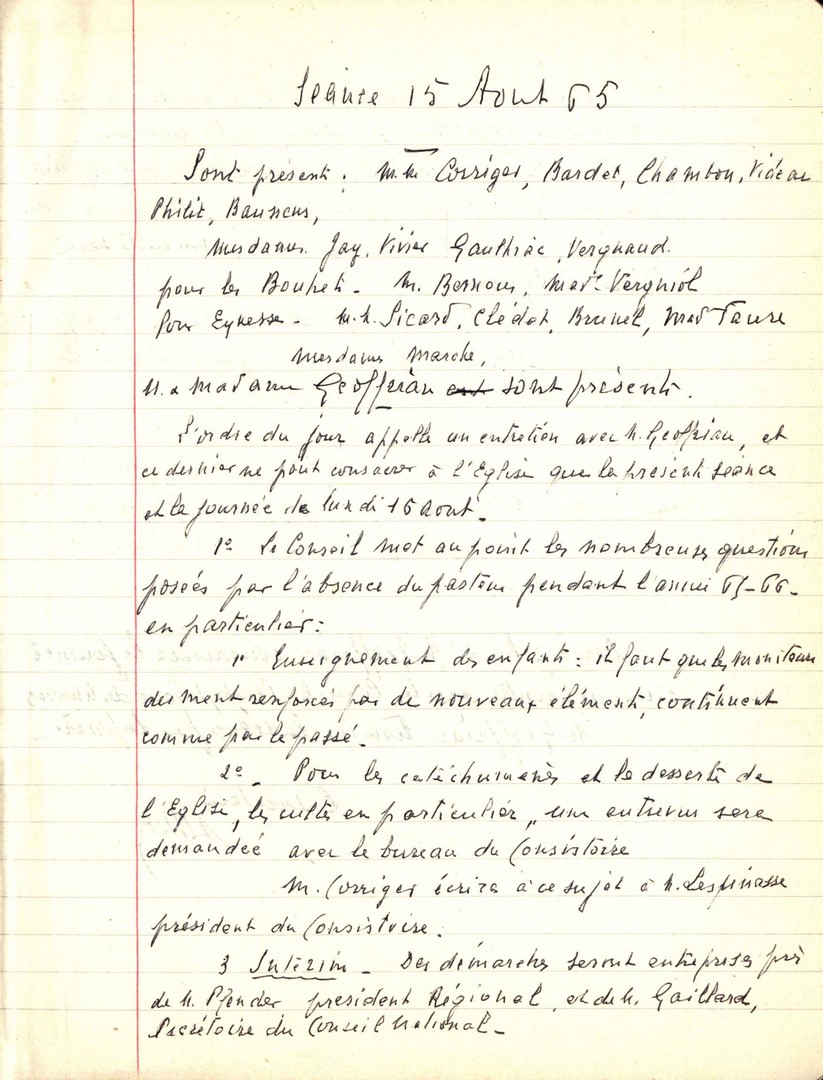 Séance 15 Aout 65
Sont présent : M.M. Corriger, Bardet, Chambon, Vidéau
Philit,
Mesdames Jay, Vivier Gauthier, Vergnaud.
pour les Bouhets - M. Bersous, Mad. Vergniol
Pour Eynesse - M.M. Sicard, Clédat, Brunel, Mad Faure
Mesdames Marche,
M. & Madame Geoffriau sont présents.
L'ordre du jour appelle un entretien avec M. Geoffriau, et
ce dernier ne peut consacrer à l'Eglise que la présent séance
et la journée de lundi 16 Aout.
1° Le Conseil met au point les nombreuses questions
posées par l'absence du pasteur pendant l'année 65-66-
en particulier :
1° Enseignement des enfants : il faut que les moniteurs
renforcés par de nouveaux éléments, continuent
comme par le passé.
2° - Pour les catéchumènes et la desserte de
l'Eglise, les cultes en particulier, une entrevue sera
demandée avec le bureau du Consistoire
M. Corriger écrira à ce sujet à M. Lespinasse
président du Consistoire.
3 Intérim - Des démarches seront entreprises près
de M. Pfender president Régional, et de M. Gaillard,
Secrétaire du Conseil National -